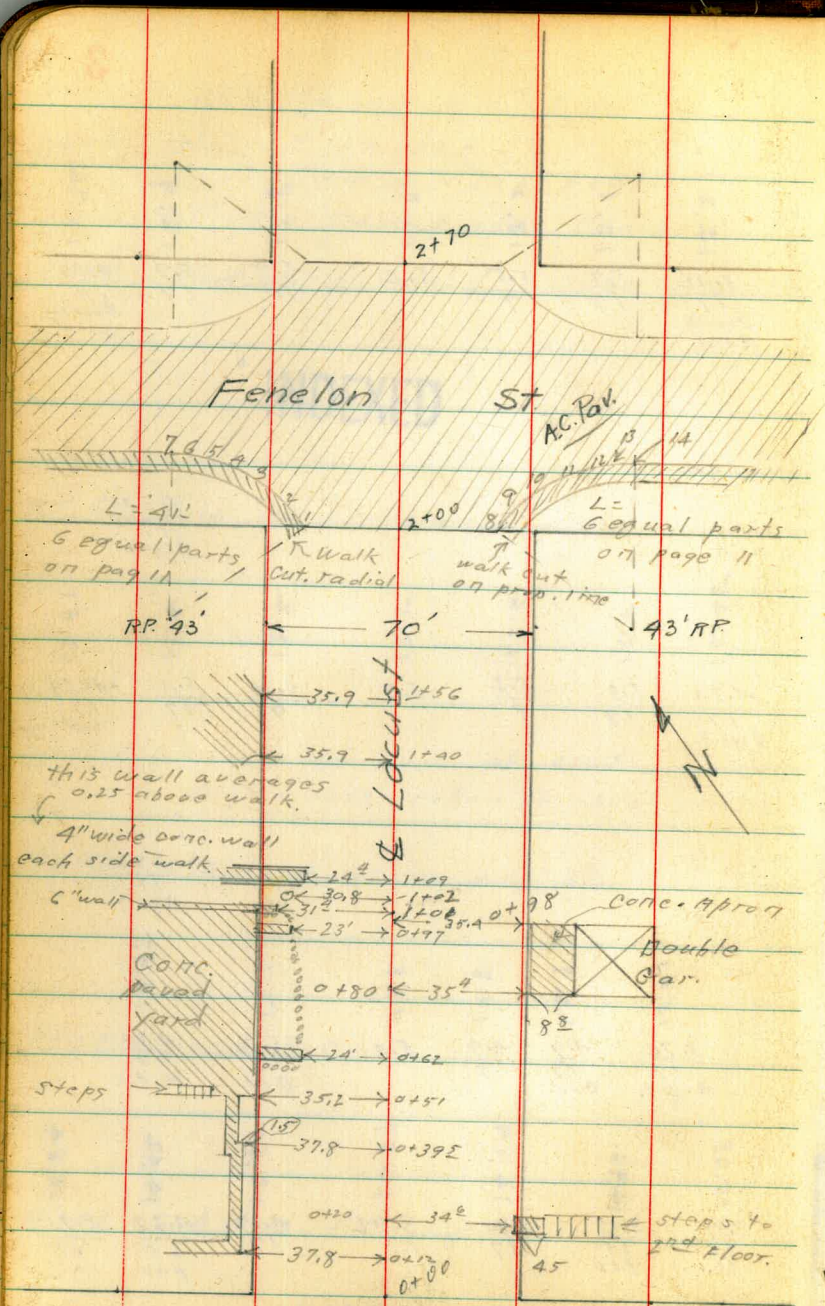 2+70
Fenelon St
A.C. Pav.
7 6 5 4 3 2 1
8 9 10 11 12 13 14
L = 41'
6 equal parts
on pag 11
Walk
Cut. radial
2+00
walk cut
on prop. line
L =
6 equal parts
on page 11
R.P. 43'
70'
43' R.P.
℄ Locust
N
35.9 1+56
35.9 1+40
this wall averages
0.25 above walk.
4" wide conc. wall
each side walk
24⁴ 1+09
30.8 1+02
6" wall
1+01
23' 0+97
35.4
0+98
Conc. Apron
Double
Gar.
Conc.
paved
yard
0+80 35⁴
8⁸
24' 0+62
steps
35.2 0+51
(1.5)
37.8 0+395
0+20 34⁶
steps to
2nd floor.
37.8 0+12
45
0+00